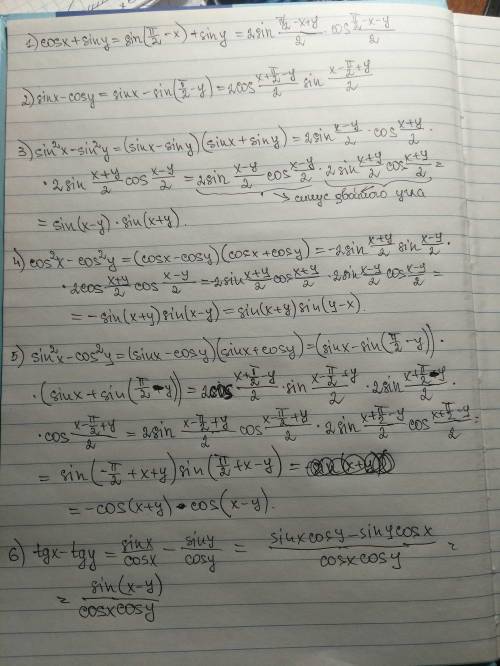 1) cosx+siny=sin(π/2-x)+siny=2sin (π/2-x+y)/2 · cos (π/2-x-y)/2
2) sinx-cosy=sinx-sin(π/2-y)=2cos (x+π/2-y)/2 sin (x-π/2+y)/2
3) sin²x-sin²y=(sinx-siny)(sinx+siny)=2sin (x-y)/2 · cos (x+y)/2 ·
· 2sin (x+y)/2 cos (x-y)/2 = 2sin (x-y)/2 cos (x-y)/2 · 2sin (x+y)/2 cos (x+y)/2 =
→ синус двойного угла
= sin(x-y)·sin(x+y).
4) cos²x-cos²y=(cosx-cosy)(cosx+cosy)=-2sin (x+y)/2 sin (x-y)/2 ·
· 2cos (x+y)/2 cos (x-y)/2 = -2sin (x+y)/2 cos (x+y)/2 · 2sin (x-y)/2 cos (x-y)/2 =
= -sin(x+y)sin(x-y)=sin(x+y)sin(y-x).
5) sin²x-cos²y=(sinx-cosy)(sinx+cosy)=(sinx-sin(π/2-y)) ·
· (sinx+sin(π/2-y))=2cos (x+π/2-y)/2 · sin (x-π/2+y)/2 · 2sin (x+π/2-y)/2 ·
· cos (x-π/2+y)/2 = 2sin (x-π/2+y)/2 cos (x-π/2+y)/2 · 2sin (x+π/2-y)/2 cos (x+π/2-y)/2 =
= sin(-π/2+x+y)sin(π/2+x-y)=
= -cos(x+y)·cos(x-y).
6) tgx-tgy= sinx/cosx - siny/cosy = (sinxcosy-sinycosx)/(cosxcosy) =
= sin(x-y)/(cosxcosy)